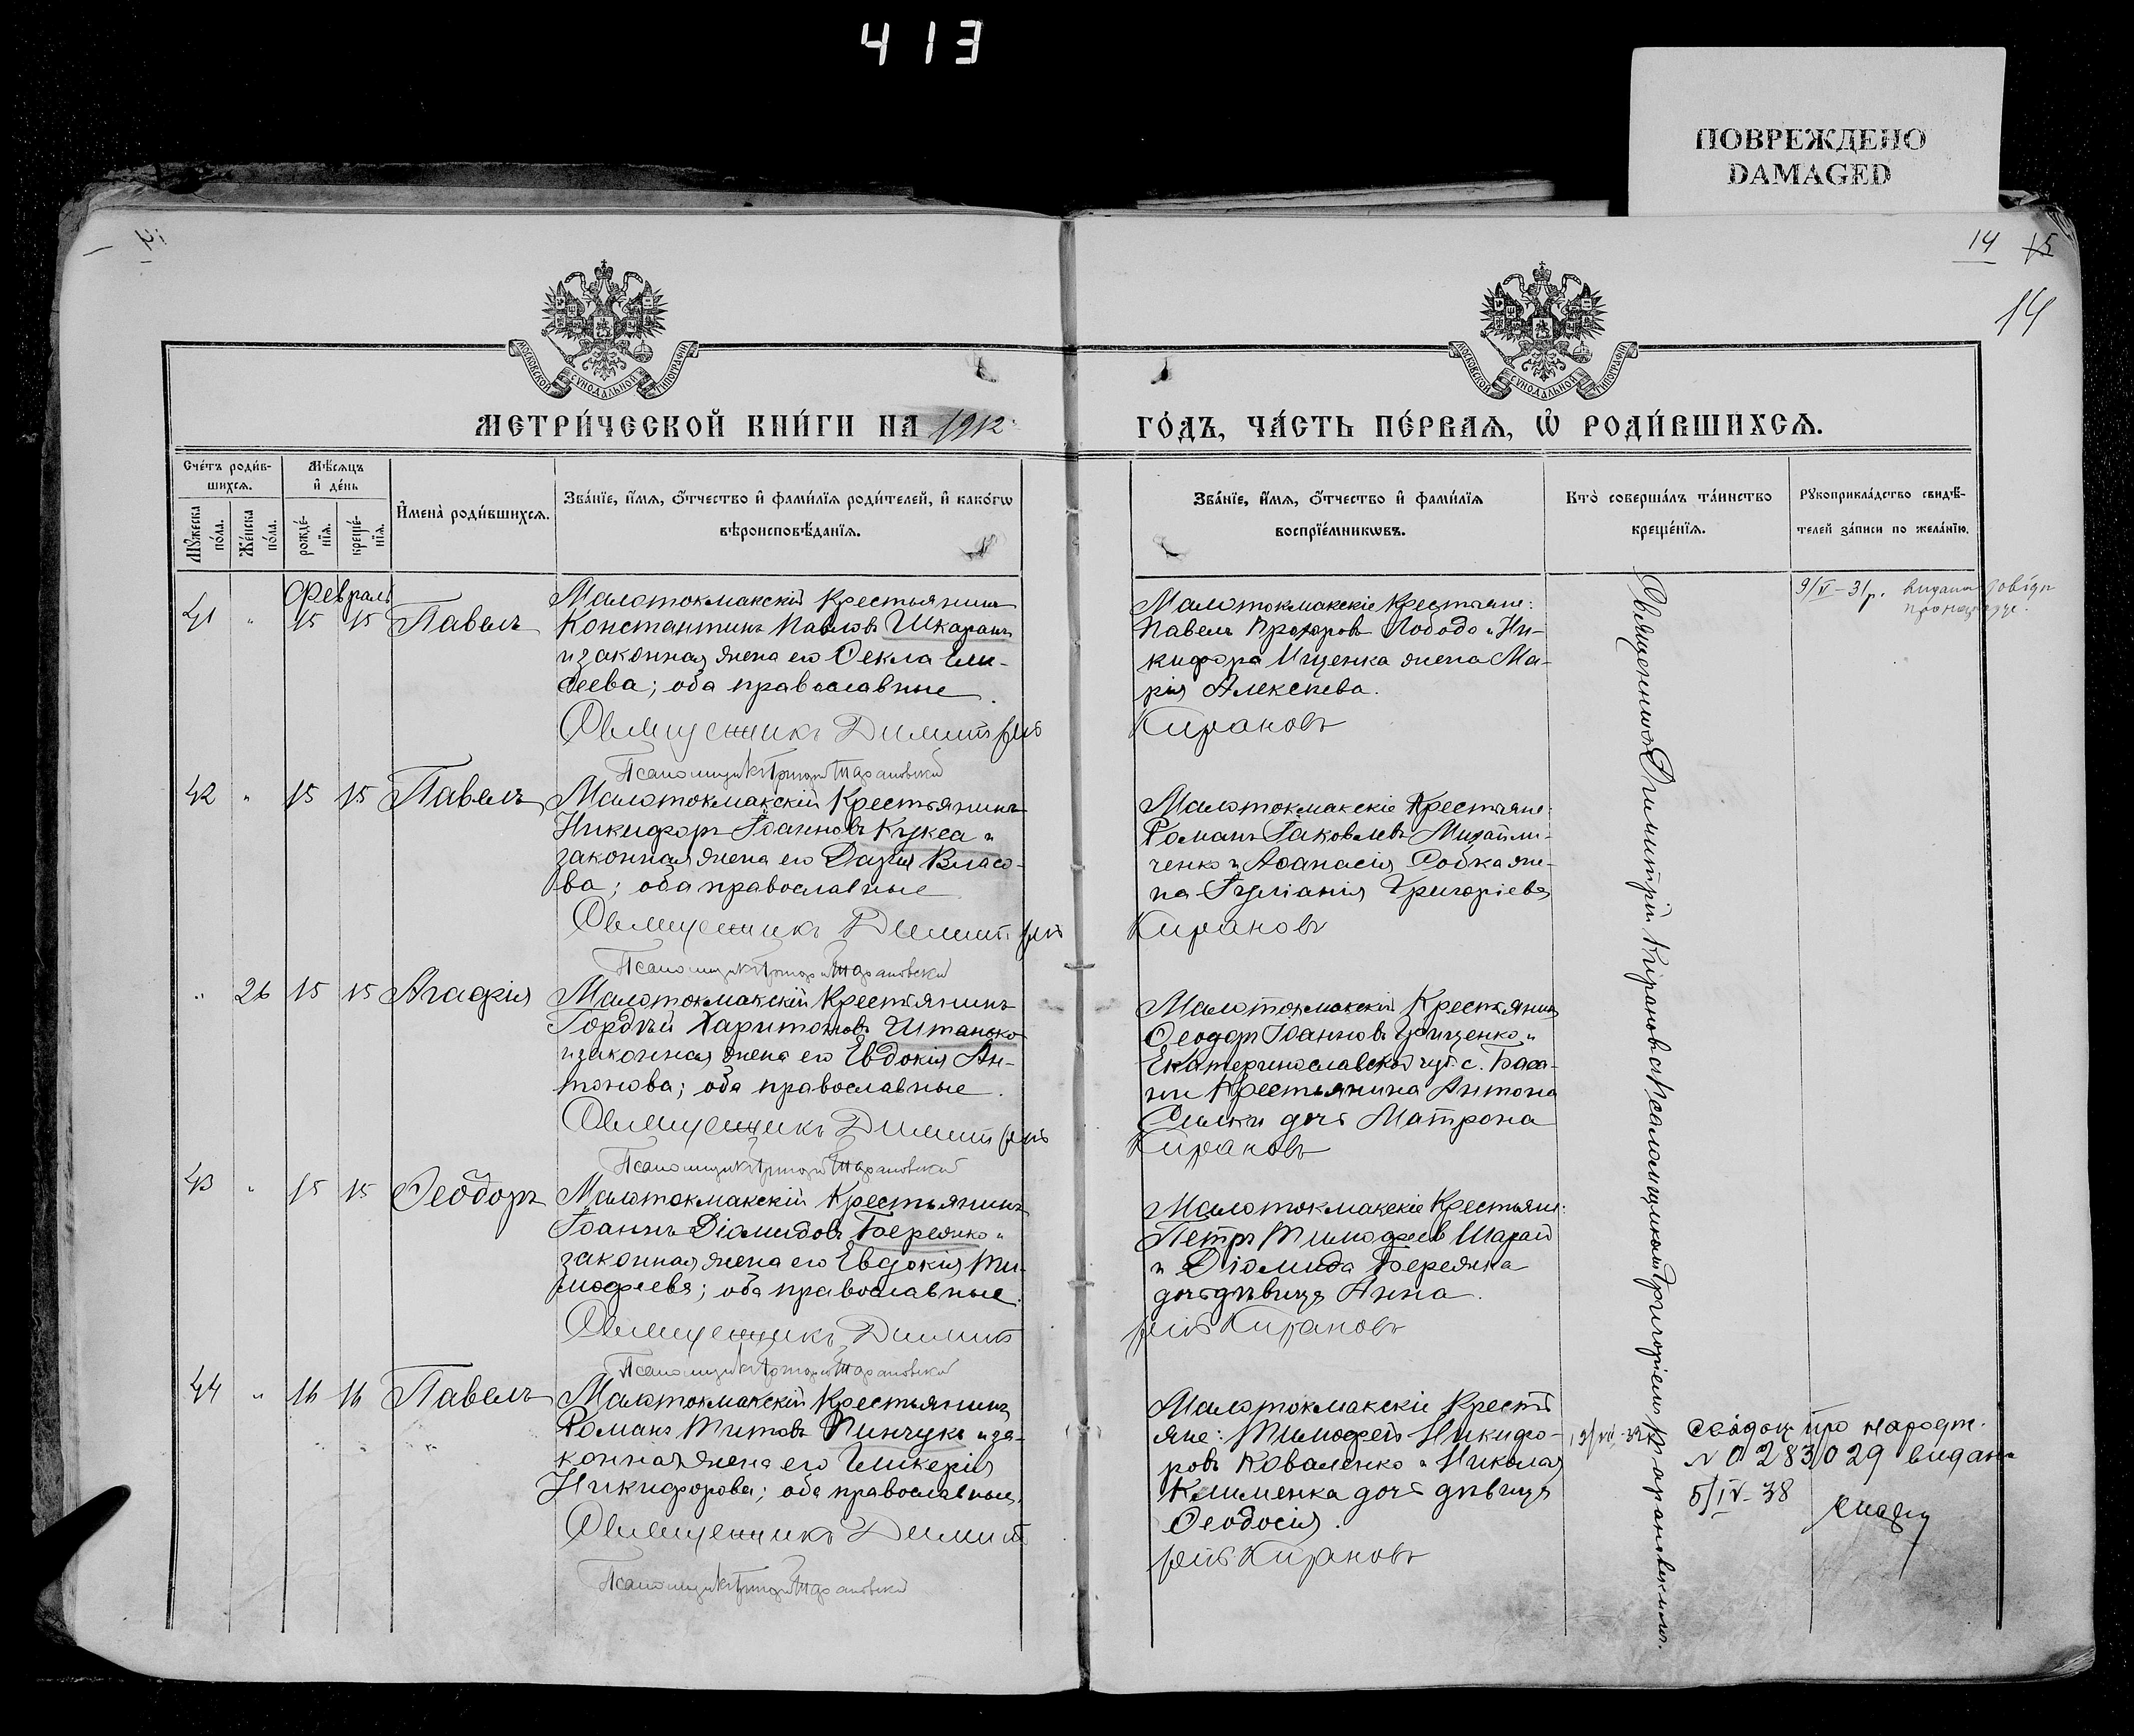 413
ПОВРЕЖДЕНО
DAMAGED
14 15
14
МОСКОВСКОЙ СѴНОДАЛЬНОЙ ТИПОГРАФІИ
МОСКОВСКОЙ СѴНОДАЛЬНОЙ ТИПОГРАФІИ
МЕТРИ́ЧЕСКОЙ КНИ́ГИ НА 1912
ГО́ДЪ, ЧА́СТЬ ПЕ́РВАѦ, Ѽ РОДИ́ВШИХСѦ.
Сче́тъ роди́в-
шихсѧ.
Мѣ́сѧцъ
и҆ де́нь
Мꙋ́жеска по́ла.
Же́нска по́ла.
рожде́-
нїѧ.
креще́-
нїѧ.
И҆мена̀ роди́вшихсѧ.
Зва́нїе, и҆́мѧ, ѻ҆́тчество и҆ фами́лїѧ роди́телей, и҆ како́гѡ
вѣроисповѣ́данїѧ.
Зва́нїе, и҆́мѧ, ѻ҆́тчество и҆ фами́лїѧ
воспрїе́мникѡвъ.
Кто̀ соверша́лъ та́инство
креще́нїѧ.
Рꙋкоприкла́дство свидѣ́-
телей за́писи по жела́нїю.
Февраль
41 " 15 15 Павелъ
Малотокмакскій Крестьянинъ
Константинъ Павловъ Шкаранъ
и законная жена его Ѳекла Ели-
сеева; оба православные
Священникъ Димитрій
Псаломщикъ Григорій Тарановскій
Малотокмакскіе Крестьяне:
Павелъ Прохоровъ Лободо и Ни-
кифора Ищенка жена Ма-
рія Алексѣева.
Кирановъ
9/V-31 р. видана довідк
42 " 15 15 Павелъ
Малотокмакскій Крестьянинъ
Никифоръ Іоанновъ Кукса и
законная жена его Дарія Власо-
ва; оба православные
Священникъ Димитрій
Псаломщикъ Григорій Тарановскій
Малотокмакскіе Крестьяне:
Романъ Іаковлевъ Михайли-
ченко и Аѳанасія Собка же-
на Іуліанія Григоріева
Кирановъ
" 26 15 15 Агафія
Малотокмакскій Крестьянинъ
Гордѣй Харитоновъ Штанько
и законная жена его Евдокія Ан-
тонова; оба православные.
Священникъ Димитрій
Псаломщикъ Григорій Тарановскій
Малотокмакскій Крестьянинъ
Ѳеодоръ Іоанновъ Грищенко и
Екатеринославской губ. с. Баса-
ни Крестьянина Антона
дочь Матрона
Кирановъ
43 " 15 15 Ѳеодоръ
Малотокмакскій Крестьянинъ
Іоаннъ Діомидовъ Бережко и
законная жена его Евдокія Ти-
моѳеева; оба православные.
Священникъ Димит
Псаломщикъ Григорій Тарановскій
Малотокмакскіе Крестьяне:
Петръ Тимоѳеев Шарай
и Діомида Бережка
дочь дѣвица Анна.
рій Кирановъ
44 " 16 16 Павелъ
Малотокмакскій Крестьянинъ
Романъ Титовъ Пинчукъ и за-
конная жена его Гликерія
Никифорова; оба православные.
Священникъ Димит
Псаломщикъ Григорій Тарановскій
Малотокмакскіе Кресть
яне: Тимоѳей Никифо-
ровъ Коваленко и Николая
Клименка дочь дѣвица
Ѳеодосія.
рій Кирановъ
Священникъ Димитрій Кирановъ съ Псаломщикомъ Григоріемъ Тарановскимъ.
Свідоц про народж.
№ 0283029 видано
5/IV-38